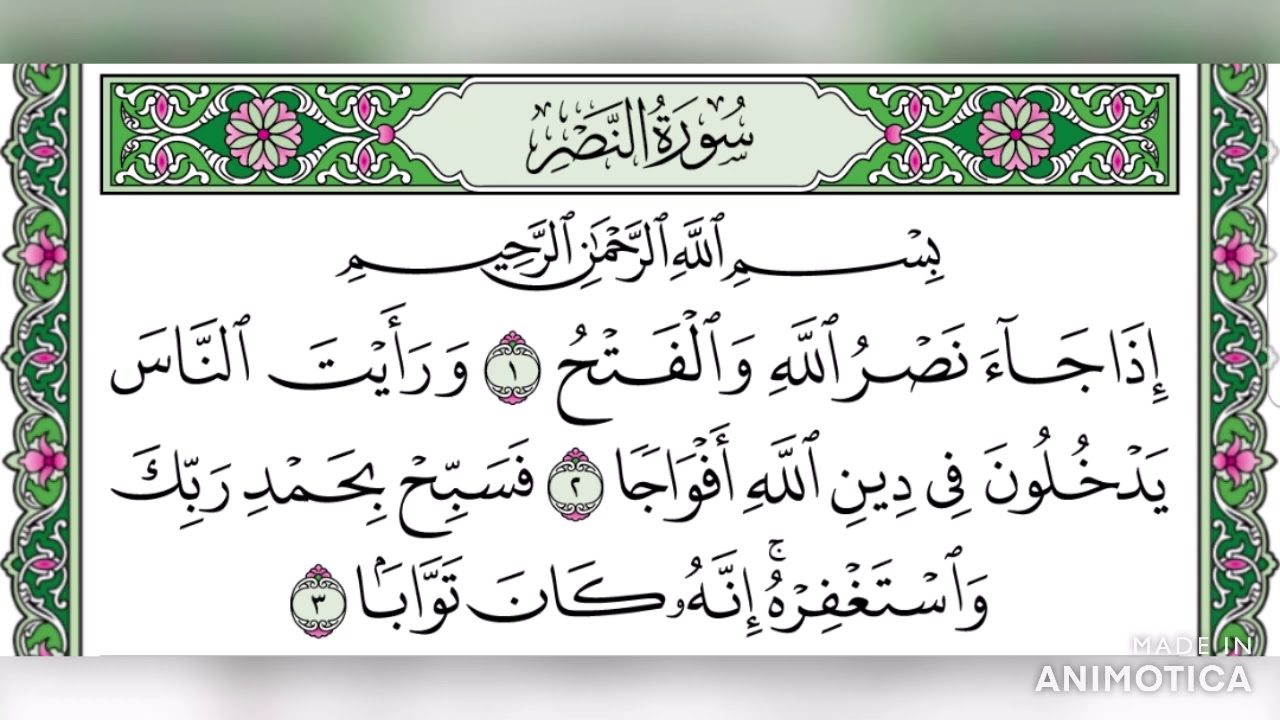 سُورَةُ النَّصْرِ
بِسْمِ ٱللَّهِ ٱلرَّحْمَٰنِ ٱلرَّحِيمِ
إِذَا جَآءَ نَصْرُ ٱللَّهِ وَٱلْفَتْحُ ١ وَرَأَيْتَ ٱلنَّاسَ
يَدْخُلُونَ فِى دِينِ ٱللَّهِ أَفْوَاجًا ٢ فَسَبِّحْ بِحَمْدِ رَبِّكَ
وَٱسْتَغْفِرْهُ ۚ إِنَّهُۥ كَانَ تَوَّابَۢا ٣
MADE IN
ANIMOTICA